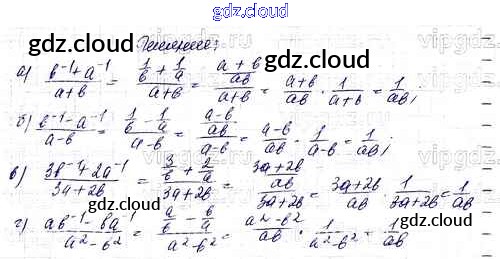 gdz.cloud
gdz.cloud Решение: gdz.cloud
а) (b⁻¹+a⁻¹)/(a+b) = (1/b + 1/a)/(a+b) = ((a+b)/ab)/(a+b) = (a+b)/ab · 1/(a+b) = 1/ab;
б) (b⁻¹-a⁻¹)/(a-b) = (1/b - 1/a)/(a-b) = ((a-b)/ab)/(a-b) = (a-b)/ab · 1/(a-b) = 1/ab;
в) (3b⁻¹+2a⁻¹)/(3a+2b) = (3/b + 2/a)/(3a+2b) = ((3a+2b)/ab)/(3a+2b) = (3a+2b)/ab · 1/(3a+2b) = 1/ab
г) (ab⁻¹-ba⁻¹)/(a²-b²) = (a/b - b/a)/(a²-b²) = (a²-b²)/ab · 1/(a²-b²) = 1/ab
gdz.cloud gdz.cloud